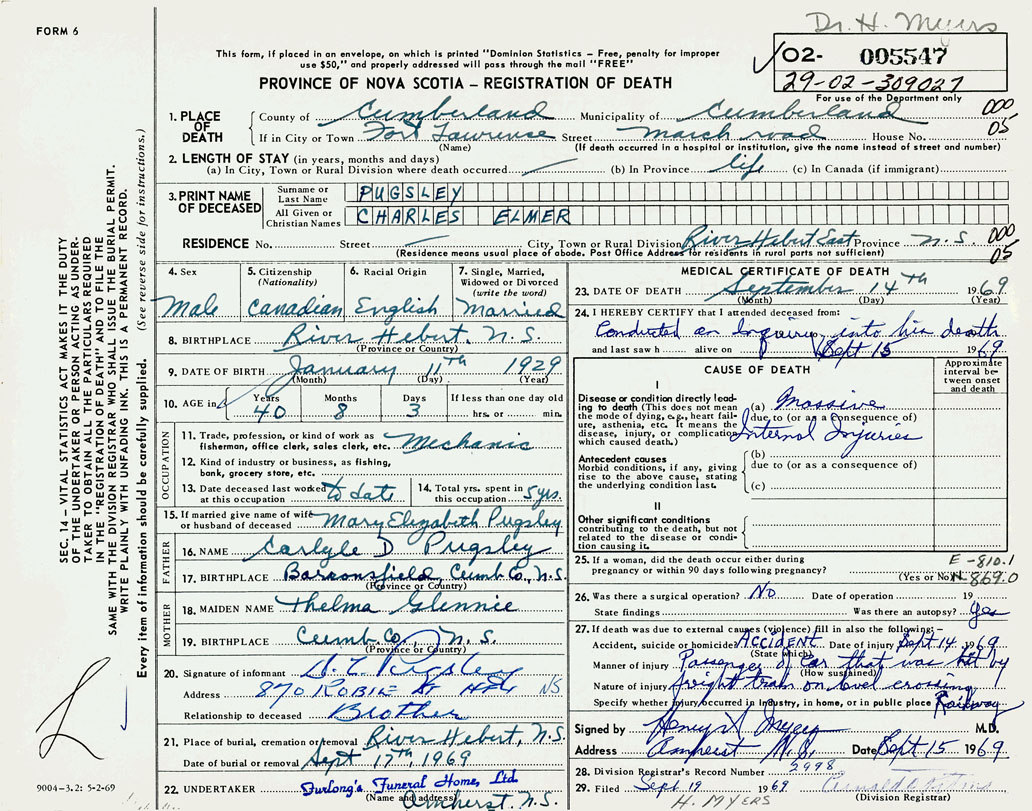 FORM 6
Dr. H. Myers
This form, if placed in an envelope, on which is printed "Dominion Statistics – Free, penalty for improper
use $50," and properly addressed will pass through the mail "FREE"
02- 005547
29-02-309027
For use of the Department only
PROVINCE OF NOVA SCOTIA – REGISTRATION OF DEATH
1. PLACE OF DEATH
County of Cumberland Municipality of Cumberland 000
If in City or Town Fort Lawrence Street March road House No. 05
(Name) (If death occurred in a hospital or institution, give the name instead of street and number)
2. LENGTH OF STAY (in years, months and days)
(a) In City, Town or Rural Division where death occurred (b) In Province life (c) In Canada (if immigrant)
3. PRINT NAME OF DECEASED
Surname or Last Name PUGSLEY
All Given or Christian Names CHARLES ELMER
RESIDENCE No. Street City, Town or Rural Division River Hebert East Province N.S. 000
(Residence means usual place of abode. Post Office Address for residents in rural parts not sufficient) 05
4. Sex
Male
5. Citizenship (Nationality)
Canadian
6. Racial Origin
English
7. Single, Married, Widowed or Divorced (write the word)
Married
8. BIRTHPLACE River Hebert, N.S.
(Province or Country)
9. DATE OF BIRTH January 11th 1929
(Month) (Day) (Year)
10. AGE in Years Months Days If less than one day old
40 8 3 hrs. or min.
OCCUPATION
11. Trade, profession, or kind of work as fisherman, office clerk, sales clerk, etc. Mechanic
12. Kind of industry or business, as fishing, bank, grocery store, etc.
13. Date deceased last worked at this occupation to date
14. Total yrs. spent in this occupation 5 yrs.
15. If married give name of wife or husband of deceased Mary Elizabeth Pugsley
FATHER
16. NAME Carlyle D Pugsley
17. BIRTHPLACE Barronsfield, Cumb. Co., N.S.
(Province or Country)
MOTHER
18. MAIDEN NAME Thelma Glennie
19. BIRTHPLACE Cumb. Co., N.S.
(Province or Country)
20. Signature of informant Pugsley
Address 870 ROBIE St NS
Relationship to deceased Brother
21. Place of burial, cremation or removal River Hebert, N.S.
Date of burial or removal Sept 17th, 1969
22. UNDERTAKER Furlong's Funeral Home, Ltd
(Name and address) Amherst, N.S.
MEDICAL CERTIFICATE OF DEATH
23. DATE OF DEATH September 14th 1969
(Month) (Day) (Year)
24. I HEREBY CERTIFY that I attended deceased from:
Conducted an Inquiry into his death
and last saw h alive on Sept 15 1969
CAUSE OF DEATH
Approximate interval between onset and death
I
Disease or condition directly leading to death (This does not mean the mode of dying, e.g., heart failure, asthenia, etc. It means the disease, injury, or complication which caused death.)
(a) Massive
due to (or as a consequence of)
Internal Injuries
Antecedent causes
Morbid conditions, if any, giving rise to the above cause, stating the underlying condition last.
(b)
due to (or as a consequence of)
(c)
II
Other significant conditions
contributing to the death, but not related to the disease or condition causing it.
25. If a woman, did the death occur either during pregnancy or within 90 days following pregnancy?
(Yes or No)
E-810.1
N 869.0
26. Was there a surgical operation? NO Date of operation 19
State findings Was there an autopsy? yes
27. If death was due to external causes (violence) fill in also the following:–
Accident, suicide or homicide ACCIDENT Date of injury Sept 14 1969
(State which)
Manner of injury Passenger of car that was hit by
(How sustained)
Nature of injury freight train on level crossing
Specify whether injury occurred in industry, in home, or in public place Railway
Signed by Henry Myers M.D.
Address Amherst N.S. Date Sept 15 1969
28. Division Registrar's Record Number 5998
29. Filed Sept 19 1969
(Division Registrar)
H. MYERS
SEC. 14 – VITAL STATISTICS ACT MAKES IT THE DUTY
OF THE UNDERTAKER OR PERSON ACTING AS UNDERTAKER TO OBTAIN ALL THE PARTICULARS REQUIRED
IN THE "REGISTRATION OF DEATH" AND TO FILE THE
SAME WITH THE DIVISION REGISTRAR WHO SHALL ISSUE THE BURIAL PERMIT.
WRITE PLAINLY WITH UNFADING INK. THIS IS A PERMANENT RECORD.
Every item of information should be carefully supplied. (See reverse side for instructions.)
9004–3.2: 5-2-69